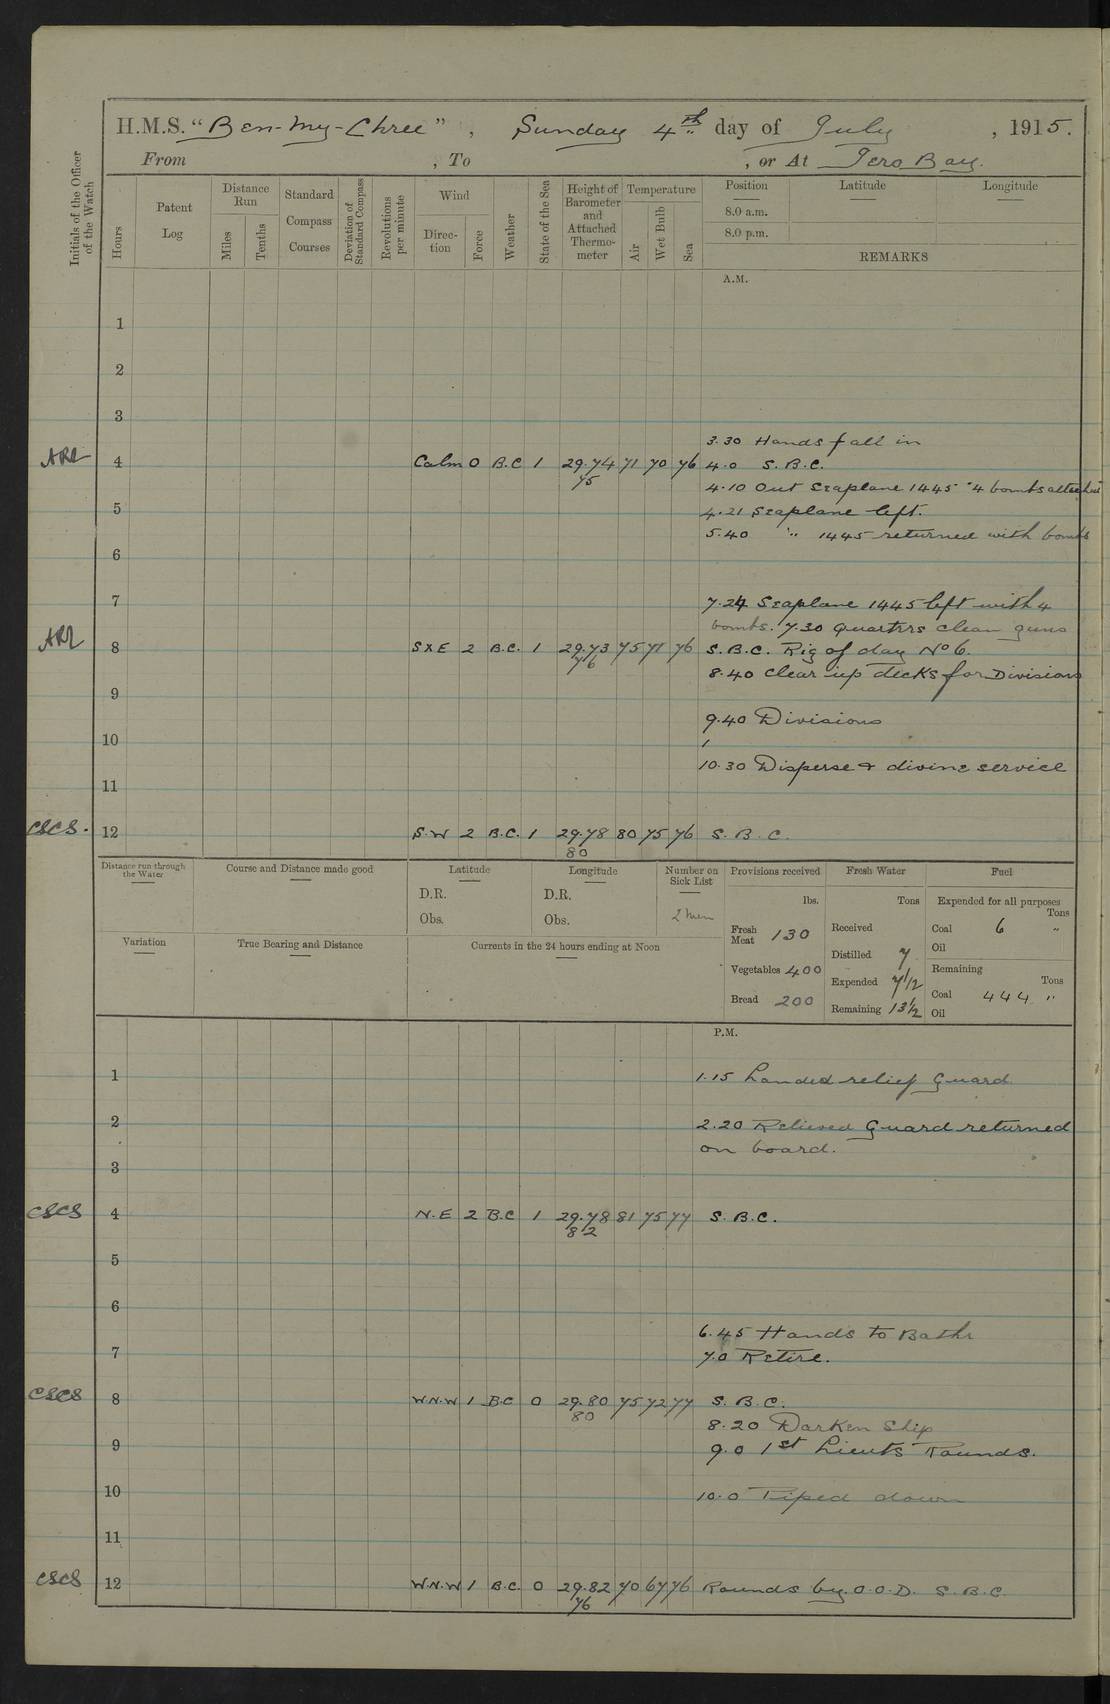 H.M.S. "Ben-my-Chree", Sunday 4th day of July, 1915.
From , To , or At Iero Bay.
Initials of the Officer of the Watch
Hours
Patent Log
Distance Run
Miles
Tenths
Standard Compass Courses
Deviation of Standard Compass
Revolutions per minute
Wind
Direction
Force
Weather
State of the Sea
Height of Barometer and Attached Thermometer
Temperature
Air
Wet Bulb
Sea
Position Latitude Longitude
8.0 a.m.
8.0 p.m.
REMARKS
A.M.
1
2
3
3.30 Hands fall in
4 Calm 0 B.C 1 29.74 71 70 76 4.0 S.B.C.
75
4.10 Out Seaplane 1445 "4 bombs attached"
5 4.21 Seaplane left.
5.40 " 1445 returned with bombs
6
7 7.24 Seaplane 1445 left with 4
bombs. 7.30 Quarters clean guns
8 S x E 2 B.C. 1 29.73 75 71 76 S.B.C. Rig of day No 6.
76
8.40 Clear up decks for Divisions
9
9.40 Divisions
10
10.30 Disperse & divine service
11
CSCS. 12 S.W 2 B.C. 1 29.78 80 75 76 S.B.C.
80
Distance run through the Water
Course and Distance made good
Latitude
D.R.
Obs.
Longitude
D.R.
Obs.
Number on Sick List
2 men
Provisions received
lbs.
Fresh Meat 130
Vegetables 400
Bread 200
Fresh Water
Tons
Received
Distilled 7
Expended 7½
Remaining 13½
Fuel
Expended for all purposes
Tons
Coal 6 "
Oil
Remaining
Tons
Coal 444 "
Oil
Variation
True Bearing and Distance
Currents in the 24 hours ending at Noon
P.M.
1 1.15 Landed relief Guard
2 2.20 Relieved Guard returned
on board.
3
CSCS 4 N.E 2 B.C 1 29.78 81 75 77 S.B.C.
82
5
6
6.45 Hands to Bathe
7 7.0 Retire.
CSCS 8 W.N.W 1 B.C 0 29.80 75 72 77 S.B.C.
80
8.20 Darken Ship
9 9.0 1st Lieuts Rounds.
10 10.0 Piped down
11
CSCS 12 W.N.W 1 B.C. 0 29.82 70 67 76 Rounds by O.O.D. S.B.C.
76